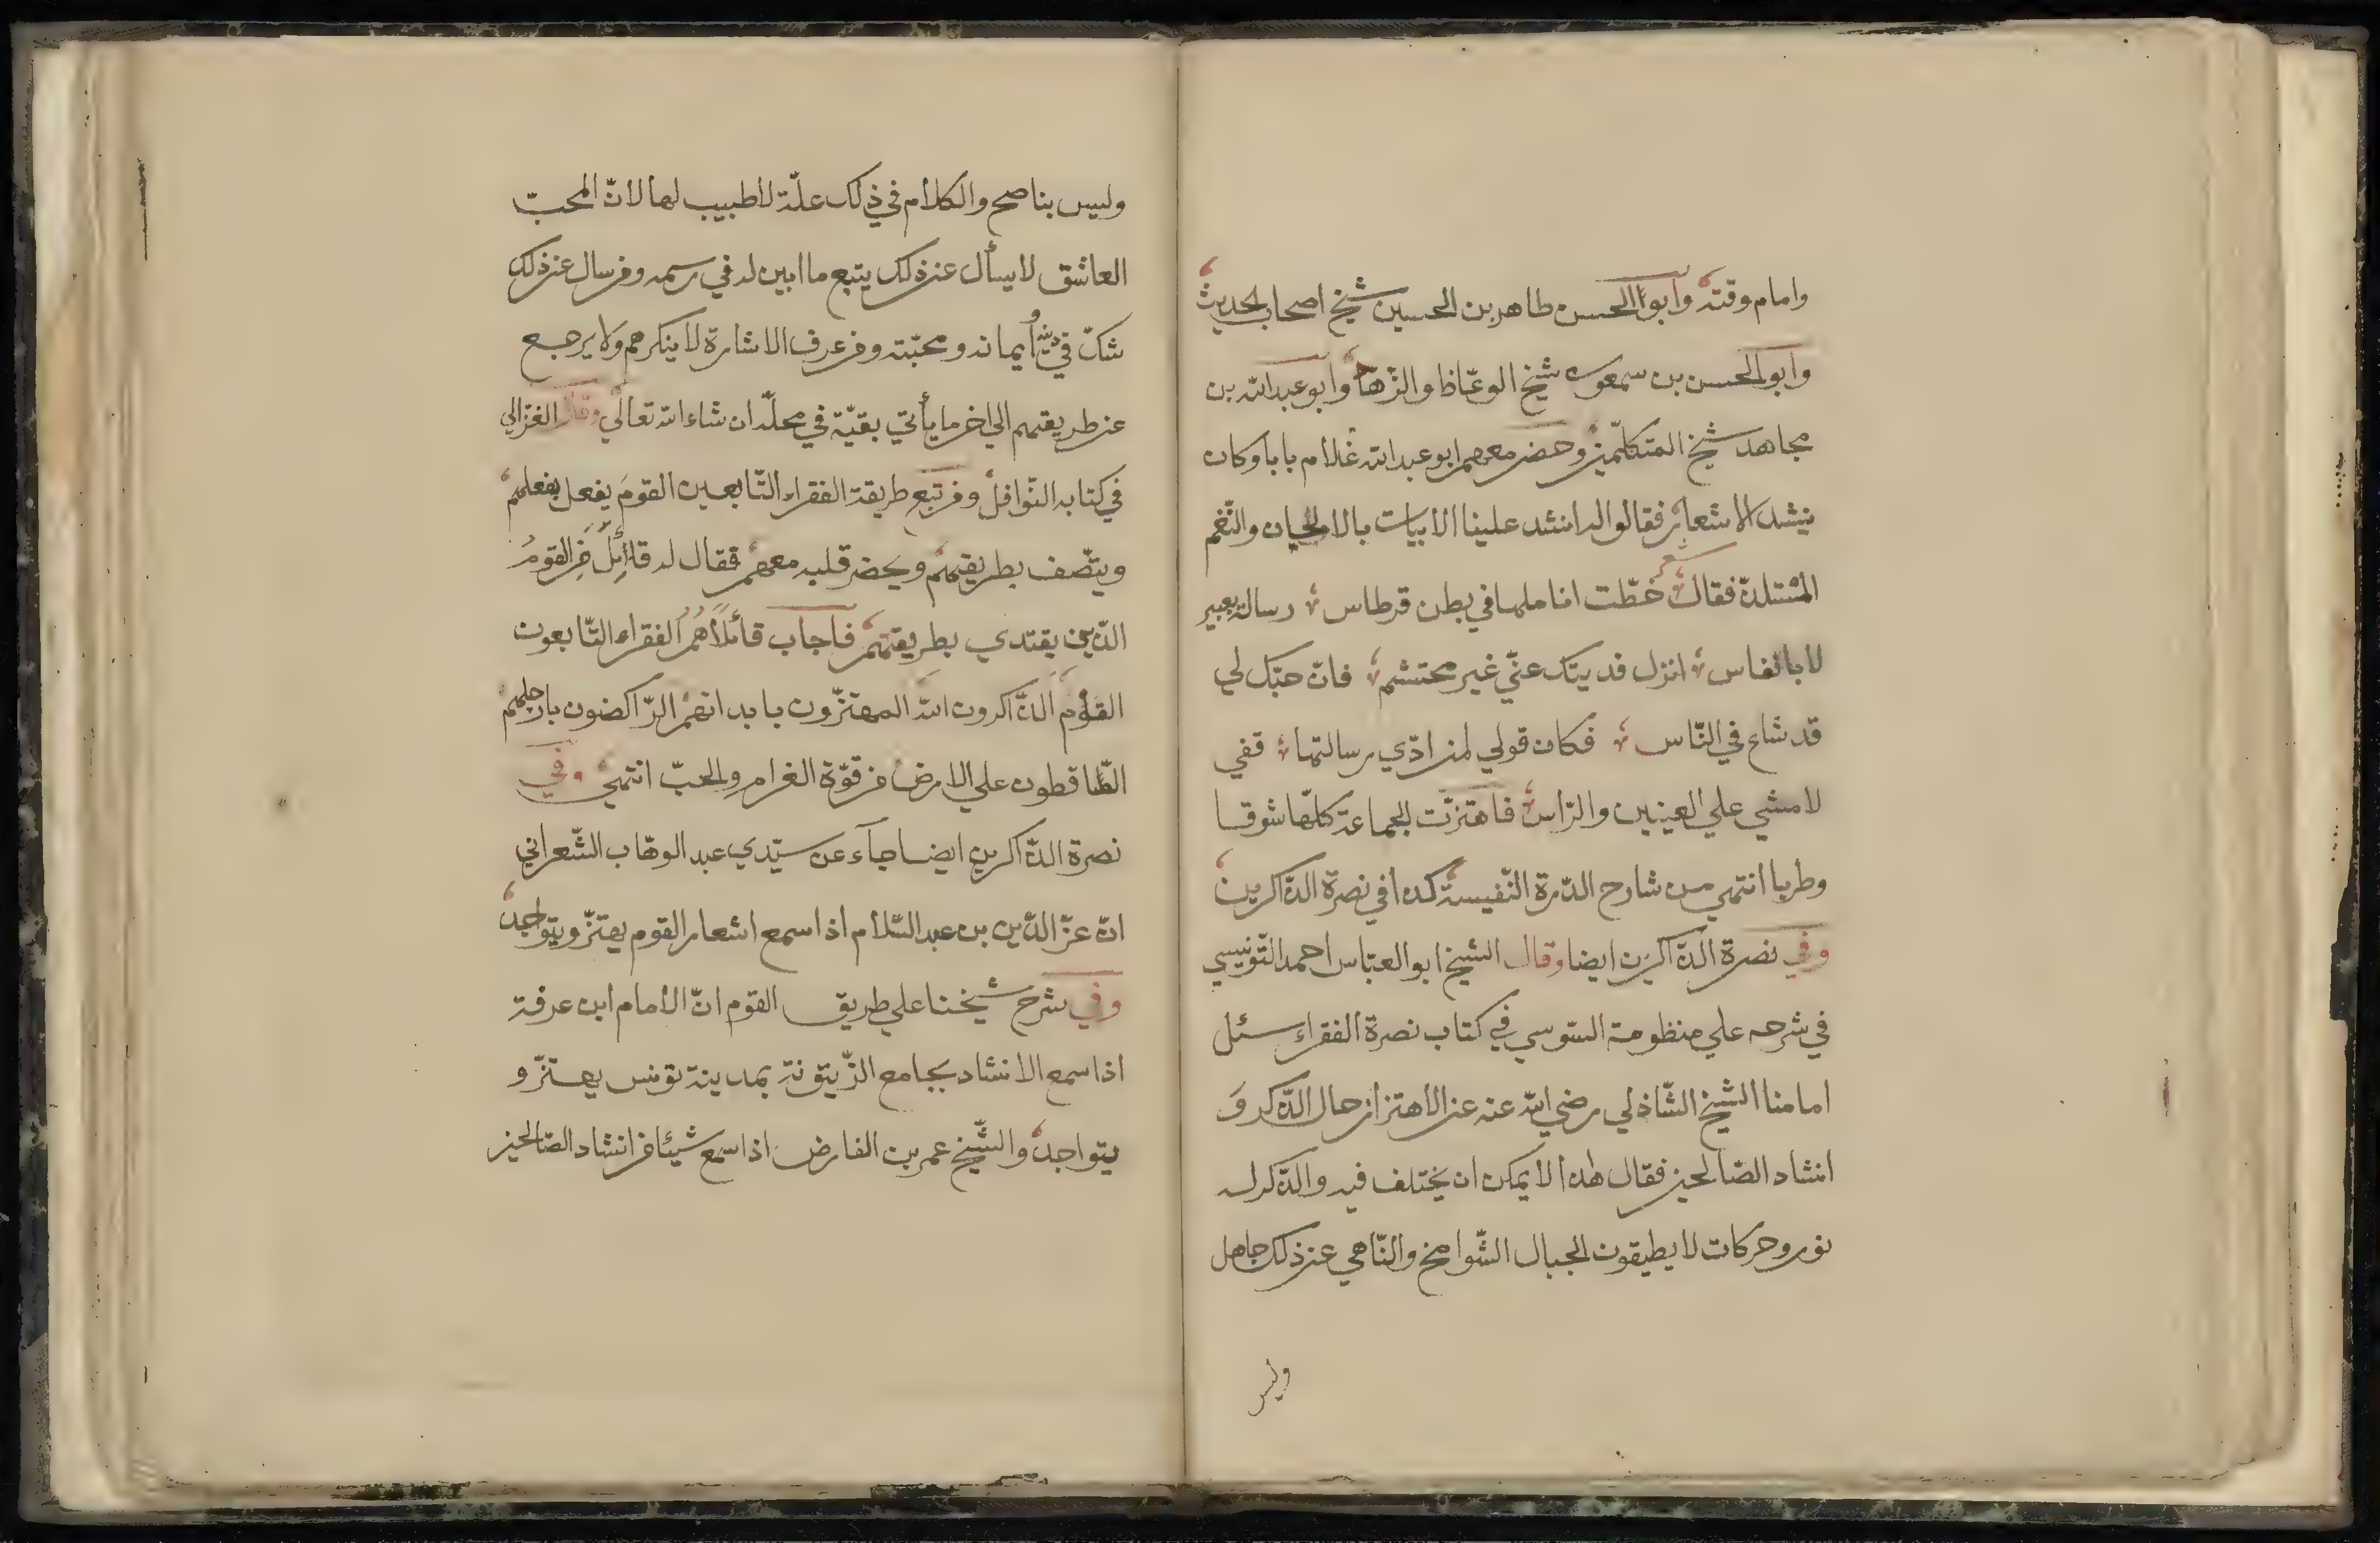 وامام وقته وابوا الحسن طاهر بن الحسين شيخ اصحاب الحديث
وابوالحسن بن سمعون شيخ الوعّاظ والزّهاد وابو عبدالله بن
مجاهد شيخ المتكلّمين وحضر معهم ابو عبدالله غلام بابا وكان
ينشد الاشعار فقالوا له انشد علينا الابيات بالالحيان والنّغم
شعر
المستلذّ فقال خطّت اناملها في بطن قرطاس رسالة بعبير
لا بانفاس انزل فديتك عنّي غير محتشم فانّ حبّك لي
قد شاع في النّاس فكان قولي لمن ادّي رسالتها قفي
لامشي علي العينين والرّاس فاهتزّت الجماعة كلّها شوقا
وطربا انتهي من شارح الدّرة النّفيسة كذا في نصرة الذّاكرين
وفي نصرة الذّاكرين ايضا وقال الشيخ ابوالعبّاس احمد التّونيسي
في شرحه علي منظومة السّوسي في كتاب نصرة الفقراء سئل
امامنا الشيخ الشّاذلي رضي الله عنه عن الاهتزاز حال الذّكر وَ
انشاد الصّالحين فقال هذا لا يمكن ان يختلف فيه والذّكر له
نور وحركات لا يطيقون الجبال الشّوامخ والنّاهي عن ذلك جاهل
وليس
وليس بناصح والكلام في ذلك علّة لا طبيب لها لانّ المحبّ
العاشق لا يسأل عن ذلك يتبع ما ابين له في رسمه ومن سال عن ذلك
شكّ في دينه أو ايمانه ومحبّته ومن عرف الاشارة لا ينكرهم ولا يرجع
عن طريقهم الي اخر ما يأتي بقيّة في محلّه ان شاء الله تعالي وقال الغزالي
في كتابه النّوافل ومن تبع طريقة الفقراء التّابعين القومَ يفعل بفعلهم
ويتّصف بطريقتهم ويحضر قلبه معهم فقال له قائِلٌ مَن القومُ
الذين يقتدي بطريقتهم فاجاب قائلًا هُمُ الفقراء التّابعون
القومَ الذّاكرون اللهَ المهتزّون بابدانهم الرّاكضون بارجلهم
السّاقطون علي الارض من قوّة الغرام والحبّ انتهي وفي
نصرة الذّاكرين ايضا جاَء عن سيّدي عبد الوهّاب الشّعراني
انّ عزّ الدّين بن عبد السّلام اذا سمع اشعار القوم يهتزّ ويتواجد
وفي شرح شيخنا علي طريق القوم انّ الامام ابن عرفة
اذا سمع الانشاد بجامع الزّيتونة بمدينة تونس يهتزّ و
يتواجد والشّيخ عمر بن الفارض اذا سمع شيئا من انشاد الصّالحين